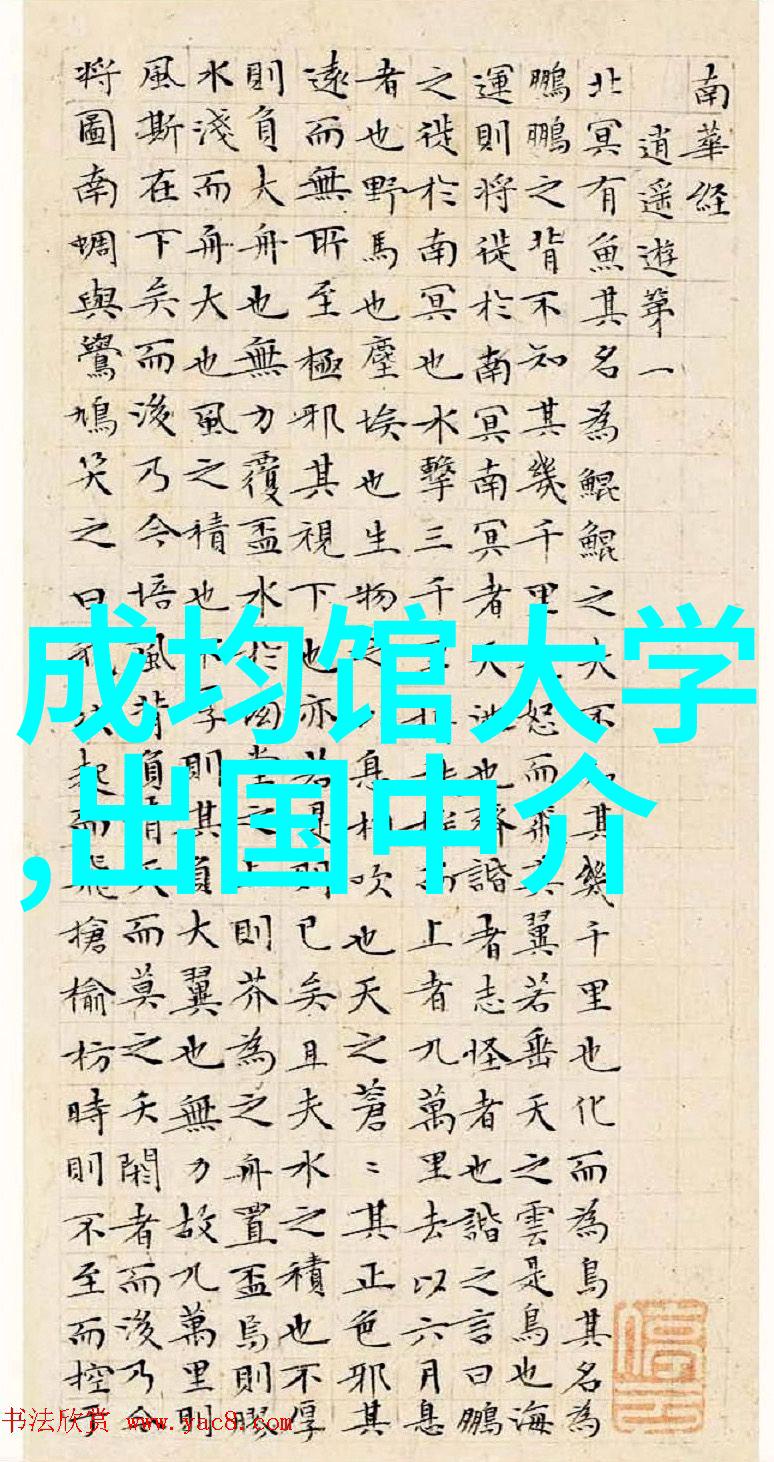 南華経
逍遥遊第一
北冥有魚其名為鯤鯤之大不其幾千里也化而為鳥其名為
鵬鵬之背不知其幾千里怒而飛其翼若垂天之雲是鳥也海
運則将徙於南冥南冥者天池也齊諧者志怪者也諧之言曰鵬
之徙於南冥也水擊三千而上者九萬里去以六月息
者也野馬也塵埃也生物息相吹也天之蒼〻其正色邪其
遠而無所至極邪其視下也亦若是則已矣且夫水之積也不厚
則負大舟也無力覆盃水於堂之上則芥為之舟置盃焉則膠
水淺而舟大也風之積也不厚則其負大翼也無力故九萬里則
風斯在下矣而後乃今培風背負青天而莫之夭閼者而後乃今
将圖南蜩與鷽鳩笑之曰我決起而飛搶榆枋時則不至而控于
成均馆大学
,出国中介
书法欣赏 www.yac8.com